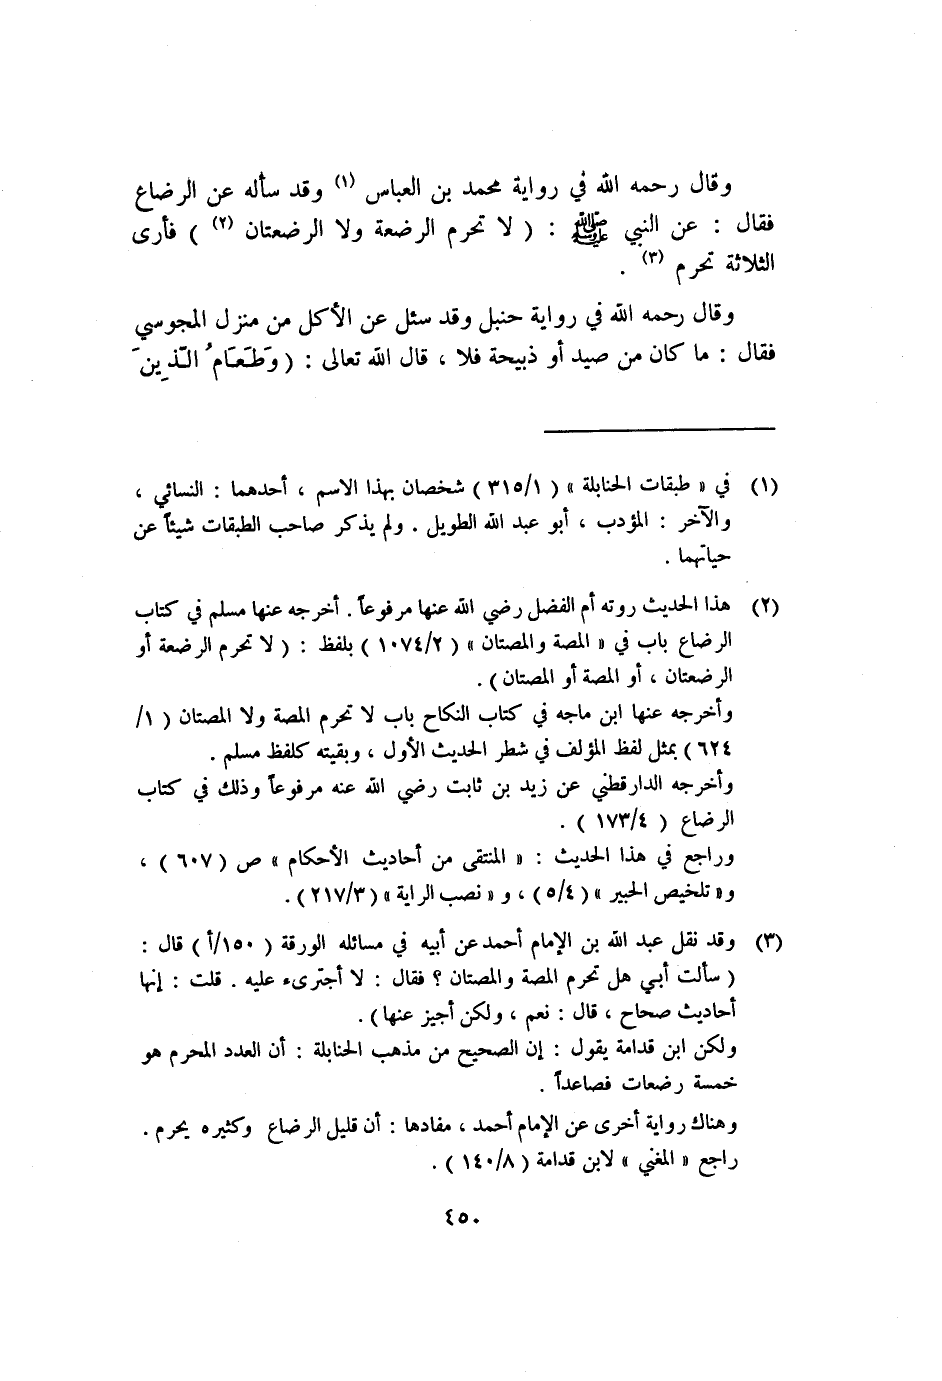 وقال رحمه الله في رواية محمد بن العباس (١) وقد سأله عن الرضاع
فقال : عن النبي ﷺ : ( لا تحرم الرضعة ولا الرضعتان (٢) ) فأرى
الثلاثة تحرم (٣) .
وقال رحمه الله في رواية حنبل وقد سئل عن الأكل من منزل المجوسي
فقال : ما كان من صيد أو ذبيحة فلا ، قال الله تعالى : ( وَطَعَامُ الَّذِينَ
(١) في « طبقات الحنابلة » ( ٣١٥/١ ) شخصان بهذا الاسم ، أحدهما : النسائي ،
والآخر : المؤدب ، أبو عبد الله الطويل . ولم يذكر صاحب الطبقات شيئاً عن
حياتهما .
(٢) هذا الحديث روته أم الفضل رضي الله عنها مرفوعاً . أخرجه عنها مسلم في كتاب
الرضاع باب في « المصة والمصتان » ( ١٠٧٤/٢ ) بلفظ : ( لا تحرم الرضعة أو
الرضعتان ، أو المصة أو المصتان ) .
وأخرجه عنها ابن ماجه في كتاب النكاح باب لا تحرم المصة ولا المصتان ( ١/
٦٢٤ ) بمثل لفظ المؤلف في شطر الحديث الأول ، وبقيته كلفظ مسلم .
وأخرجه الدارقطني عن زيد بن ثابت رضي الله عنه مرفوعاً وذلك في كتاب
الرضاع ( ١٧٣/٤ ) .
وراجع في هذا الحديث : « المنتقى من أحاديث الأحكام » ص ( ٦٠٧ ) ،
و « تلخيص الحبير » ( ٥/٤ ) ، و « نصب الراية » ( ٢١٧/٣ ) .
(٣) وقد نقل عبد الله بن الإمام أحمد عن أبيه في مسائله الورقة ( ١٥٠/أ ) قال :
( سألت أبي هل تحرم المصة والمصتان ؟ فقال : لا أجترىء عليه . قلت : إنها
أحاديث صحاح ، قال : نعم ، ولكن أجيز عنها ) .
ولكن ابن قدامة يقول : إن الصحيح من مذهب الحنابلة : أن العدد المحرم هو
خمسة رضعات فصاعداً .
وهناك رواية أخرى عن الإمام أحمد ، مفادها : أن قليل الرضاع وكثيره يحرم .
راجع « المغني » لابن قدامة ( ١٤٠/٨ ) .
٤٥٠